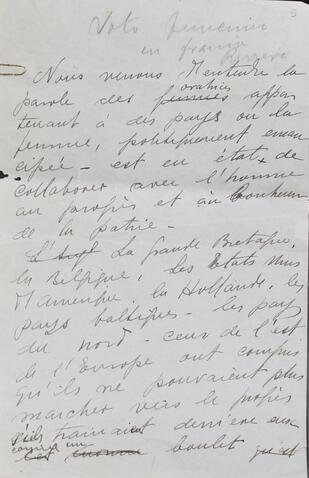 5
Voto femenino
en franca
Nous venons d'entendre la
oratrices
parole des femmes appar
tenant à des pays où la
femme, politiquement eman
cipée - est en état de
collaborer avec l'homme
au progrès et au bonheur
de la patrie -
La Grande Bretagne,
la Belgique, les Etats Unis
d'Amerique, la Hollande, les
pays baltiques - les pays
du nord - ceux de l'est
de l'Europe ont compris
qu'ils ne pouvaient plus
marcher vers le progrès
s'ils trainaient derrière eux
comme un
boulet qui est